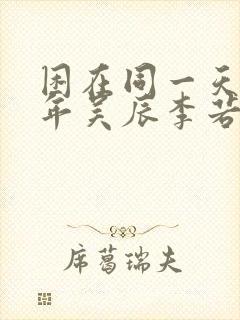 困在同一天
年吴辰李若
席葛瑞夫